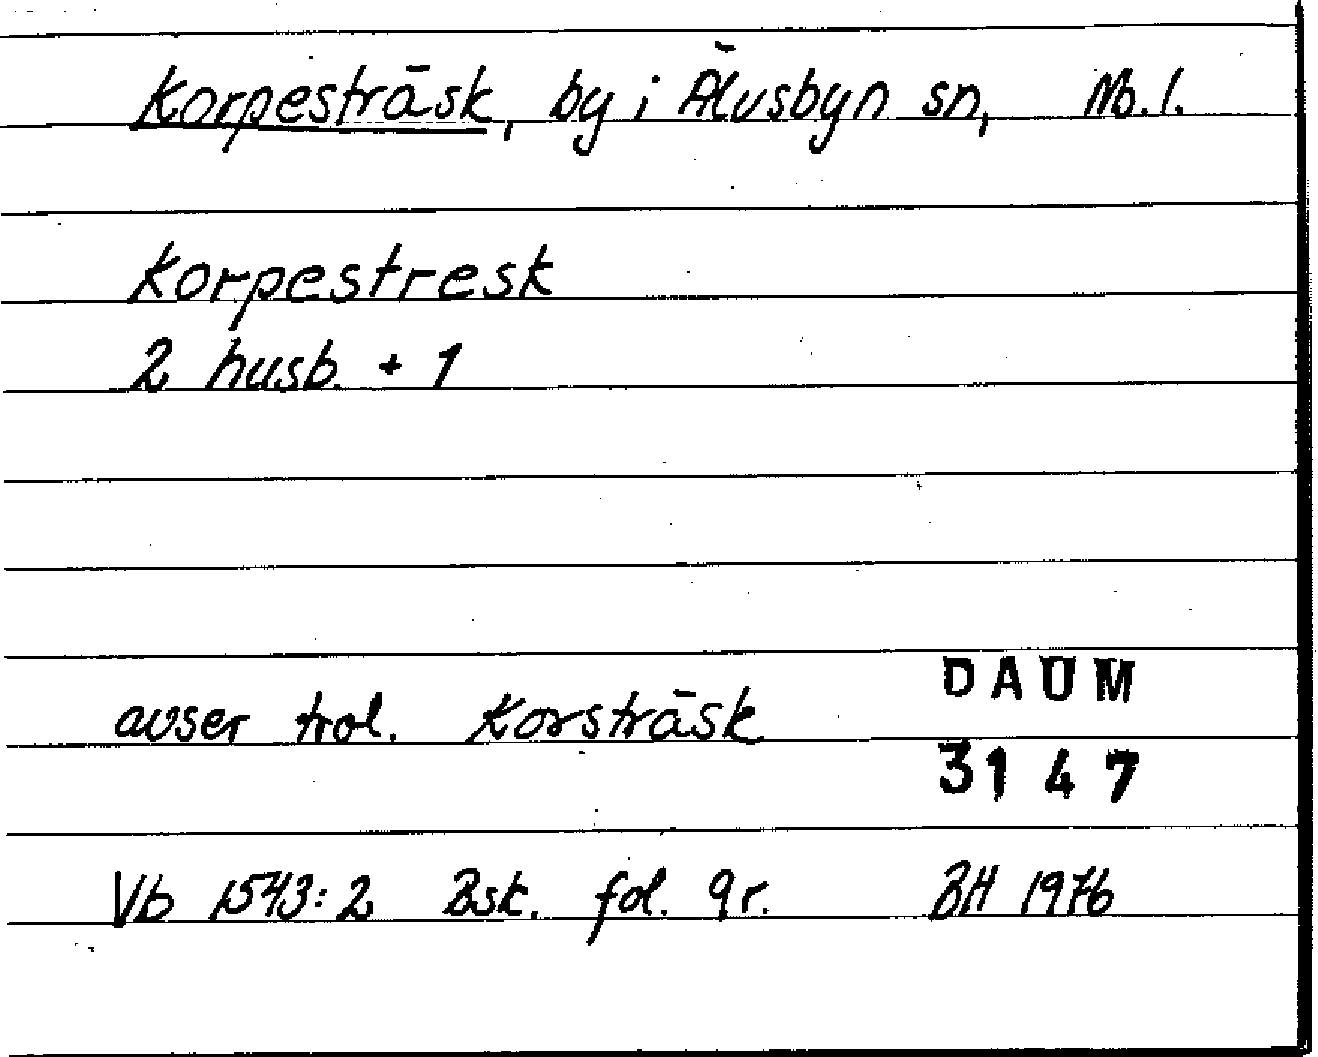 Korpesträsk, by i Älvsbyn sn, Nb. l.
Korpestresk
2 husb. + 1
avser trol. Korsträsk
DAUM
3147
Vb 1543:2 Bsk. fol. 9r. BH 1976